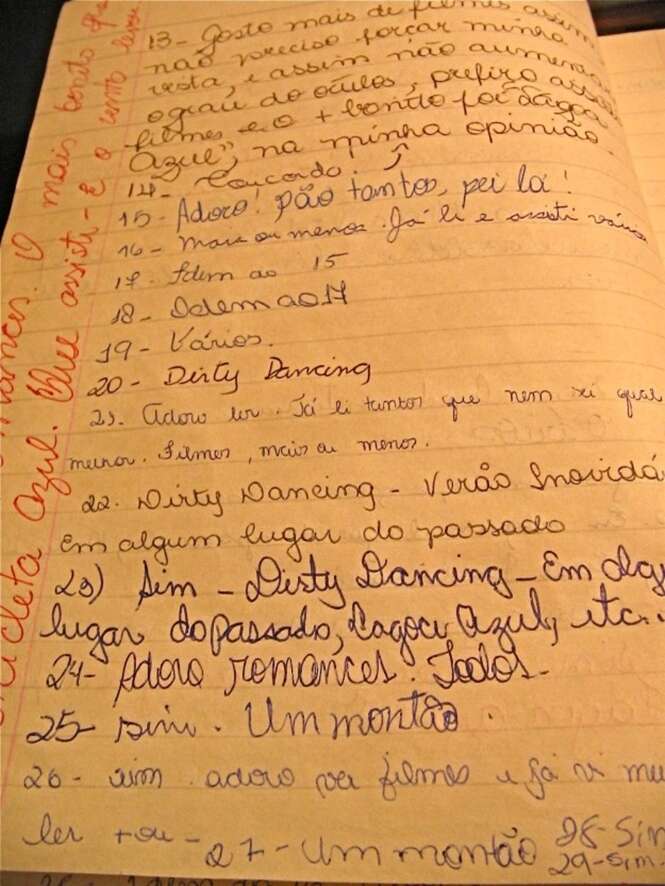 13- Gosto mais de filmes assim
não preciso forçar minha
vista, e assim não aumenta
o grau do óculos, prefiro
filmes e o + bonito foi "Lagoa
Azul", na minha opinião.
14- Concordo.
15- Adoro! São tantos, sei lá!
16- Mais ou menos. Já li e assisti vários
17- Idem ao 15
18- Idem ao 17
19- Vários.
20- Dirty Dancing
21. Adoro ler. Já li tantos que nem sei qual
melhor. Filmes, mais ou menos.
22. Dirty Dancing - Verão Inovidá
Em algum lugar do passado
23) Sim - Dirty Dancing - Em algu
lugar do passado, Lagoa Azul, etc.
24- Adoro romances. Todos.
25- sim. Um montão.
26- sim adoro ver filmes e já vi mu
ler + ou -
27- Um montão
28- Sim
29- Sim.
O mais bonito
azul. assisti - E o vento